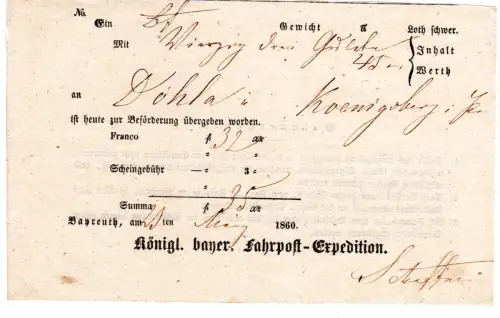 No.
Ein Bf Gewicht ℔ Loth schwer.
Mit Vierzig drei Gulden 45 x Inhalt
Werth
an Döhla in Koenigsberg i. Pr
ist heute zur Beförderung übergeben worden.
Franco fl 32 xr
" "
Scheingebühr — " 3 "
"
Summa fl 35 xr
Bayreuth, am ten May 1860.
Königl. bayer. Fahrpost-Expedition.